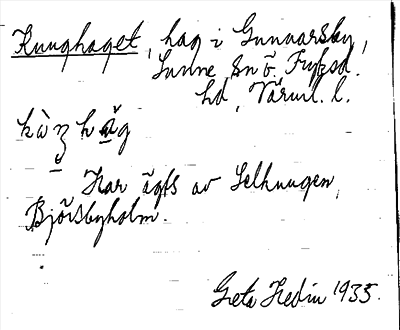 Kunghaget, hag i Gunnarsby,
Sunne sn ö. Fryksd.
hd, Värml. l.
kàŋhǎg
Har ägts av Selkungen,
Björsbyholm.
Greta Hedin 1935.